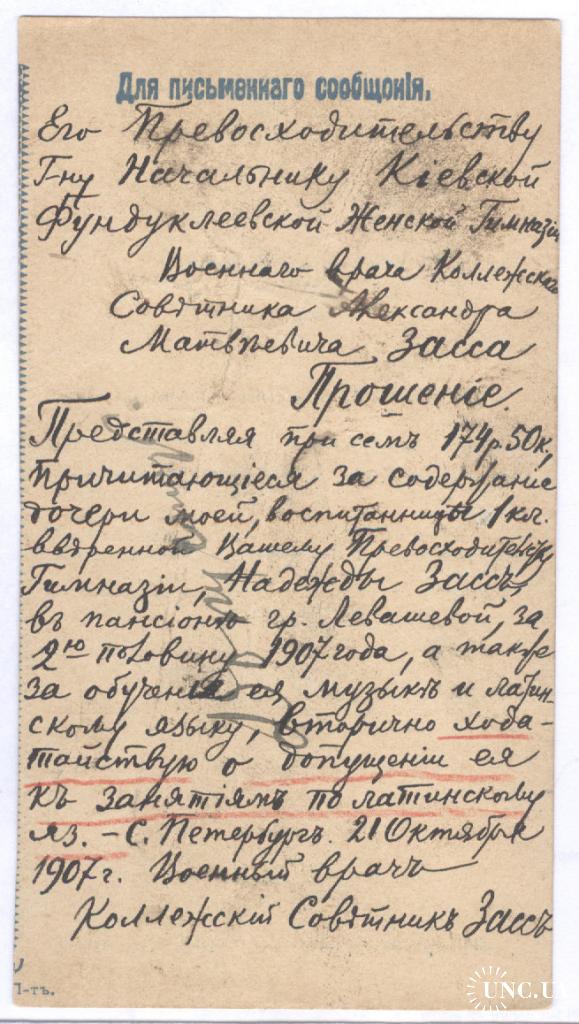 Для письменнаго сообщенія.
Его Превосходительству
Г-ну Начальнику Кіевской
Фундуклеевской Женской Гимназіи
Военнаго врача Коллежскаго
Совѣтника Александра
Матвѣевича Засса
Прошеніе.
Представляя при семъ 174 р. 50 к.,
причитающіеся за содержаніе
дочери моей, воспитанницы 1 кл.
ввѣренной Вашему Превосходительству
Гимназіи, Надежды Зассъ,
въ пансіонѣ гр. Левашевой, за
2ую половину 1907 года, а также
за обученіе ея музыкѣ и латин-
скому языку, вторично хода-
тайствую о допущеніи ея
къ занятіямъ по латинскому
яз. – С. Петербургъ. 21 Октября
1907 г. Военный врачъ
Коллежскій Совѣтникъ Зассъ
П-тъ.
UNC.UA